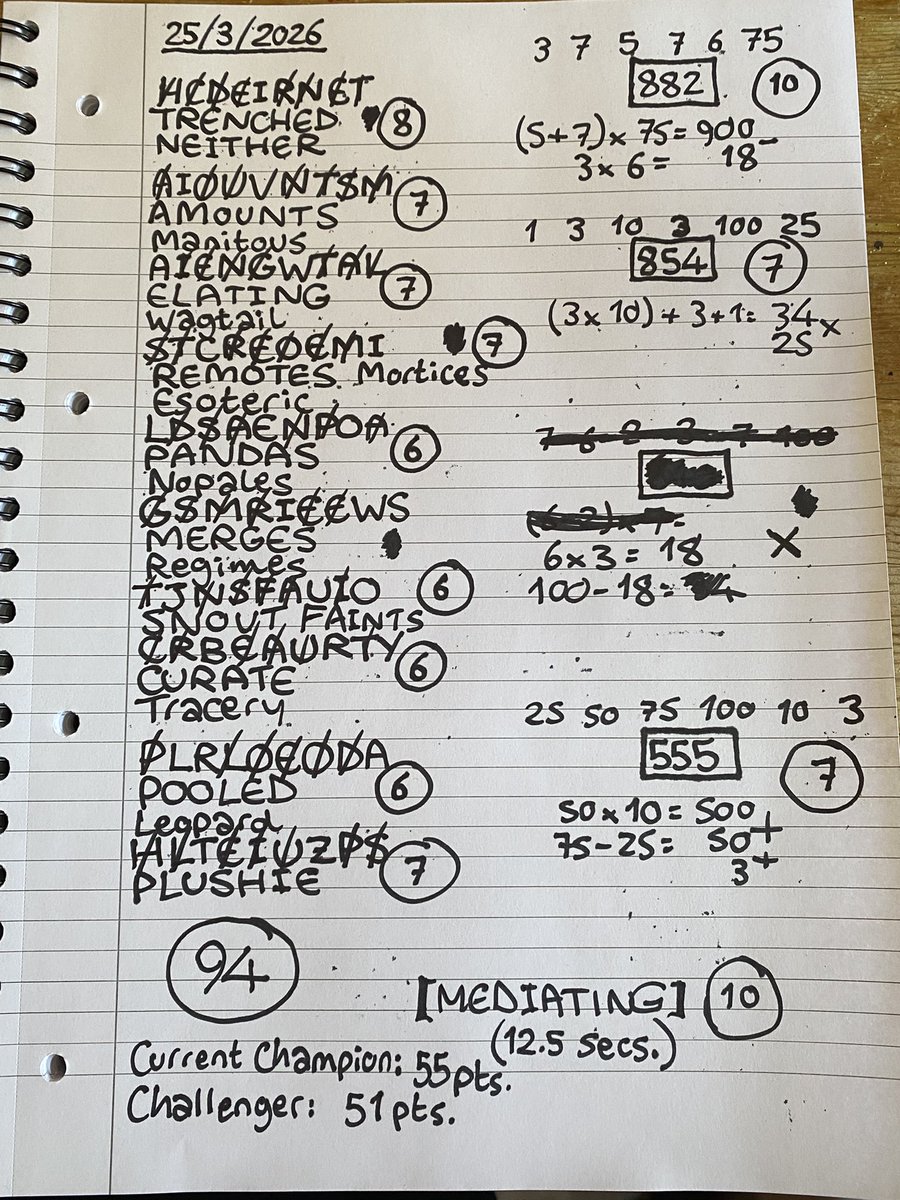 25/3/2026
HCDEIRNET
TRENCHED 8
NEITHER
AIOUVNTSM 7
AMOUNTS
Manitous
AIENGWTAL 7
ELATING
Wagtail
STCREOEMI 7
REMOTES Mortices
Esoteric
LDSAENPOA
PANDAS 6
Nopales
GSMRIEEWS
MERGES
Regimes
TJNSFAUIO 6
SNOUT FAINTS
CRBEAURTY
CURATE 6
Tracery
PLRLOEODA
POOLED 6
Leopard
HLTEIUZPS
PLUSHIE 7
94
3 7 5 7 6 75
882 10
(5+7)x 75=900-
3x6= 18
1 3 10 3 100 25
854 7
(3x10)+3+1= 34x
25
7 6 2 3 7 100
6x3=18 X
100-18=
25 50 75 100 10 3
555 7
50x10=500+
75-25= 50+
3
[MEDIATING] 10
(12.5 secs.)
Current Champion: 55pts.
Challenger: 51pts.